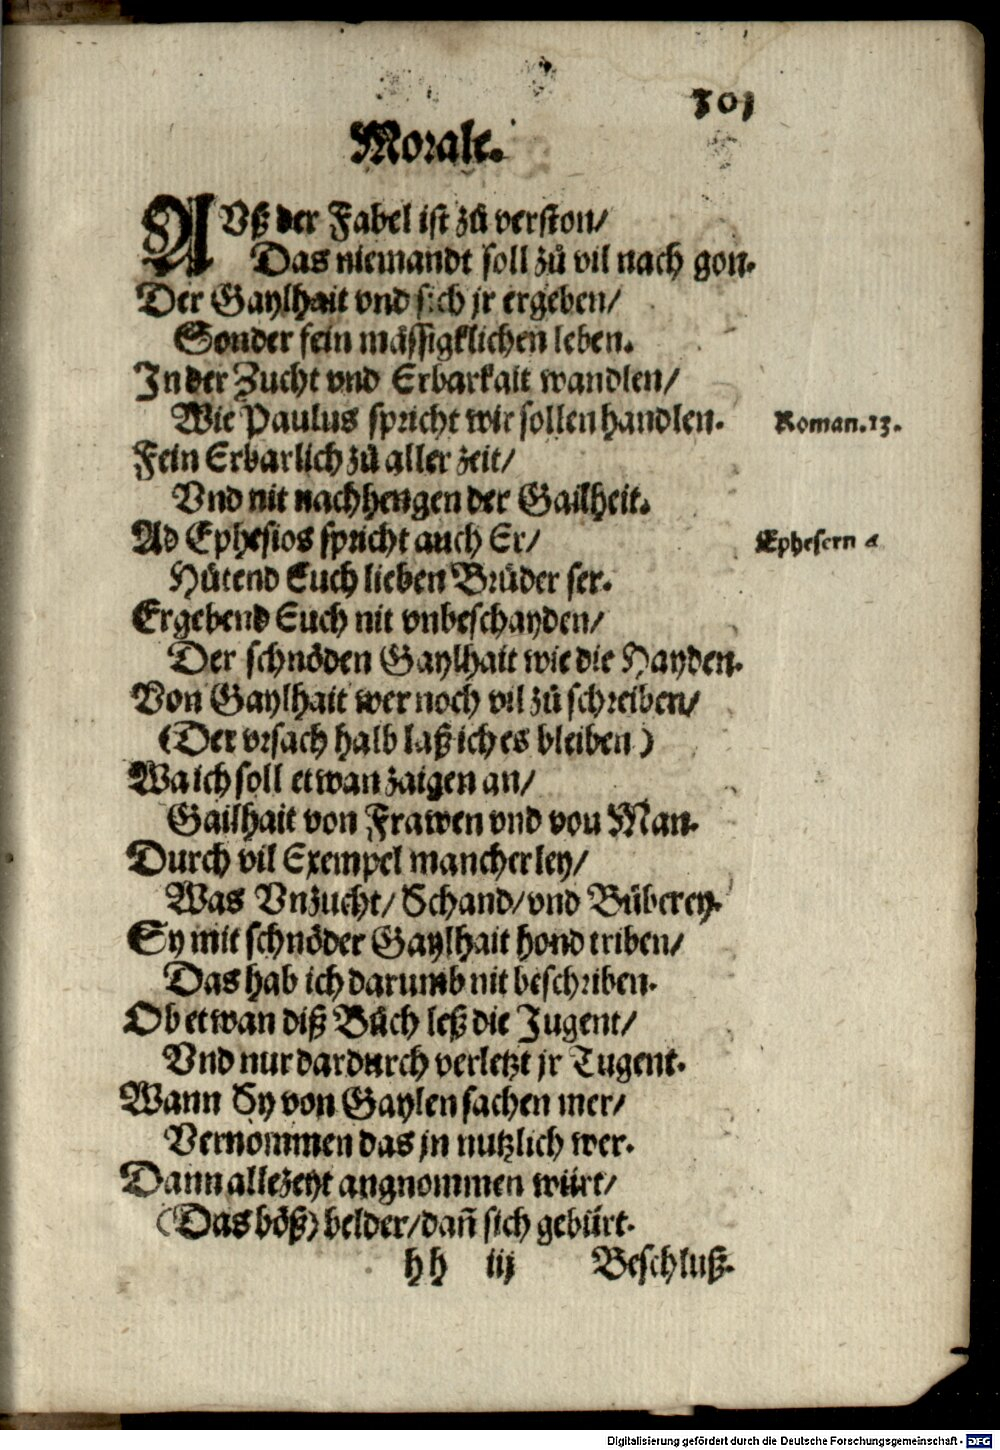 301
Morale.
AVß der Fabel ist zů verston/
Das niemandt soll zů vil nach gon.
Der Gaylhait vnd sich jr ergeben/
Sonder fein mässigklichen leben.
In der Zucht vnd Erbarkait wandlen/
Wie Paulus spricht wir sollen handlen.
Roman.13.
Fein Erbarlich zů aller zeit/
Vnd nit nachhengen der Gailheit.
Ad Ephesios spricht auch Er/
Ephesern 4
Hütend Euch lieben Brüder ser.
Ergebend Euch nit vnbeschayden/
Der schnöden Gaylhait wie die Hayden.
Von Gaylhait wer noch vil zů schreiben/
(Der vrsach halb laß ich es bleiben)
Wa ich soll etwan zaigen an/
Gailhait von Frawen vnd von Man.
Durch vil Exempel mancherley/
Was Vnzucht/ Schand/ vnd Büberey.
Sy mit schnöder Gaylhait hond triben/
Das hab ich darumb nit beschriben.
Ob etwan diß Bůch leß die Jugent/
Vnd nur dardurch verletzt jr Tugent.
Wann Sy von Gaylen sachen mer/
Vernommen das jn nutzlich wer.
Dann allezeyt angnommen würt/
(Das böß) belder/ dañ sich gebürt.
hh iij Beschluß.
Digitalisierung gefördert durch die Deutsche Forschungsgemeinschaft - DFG